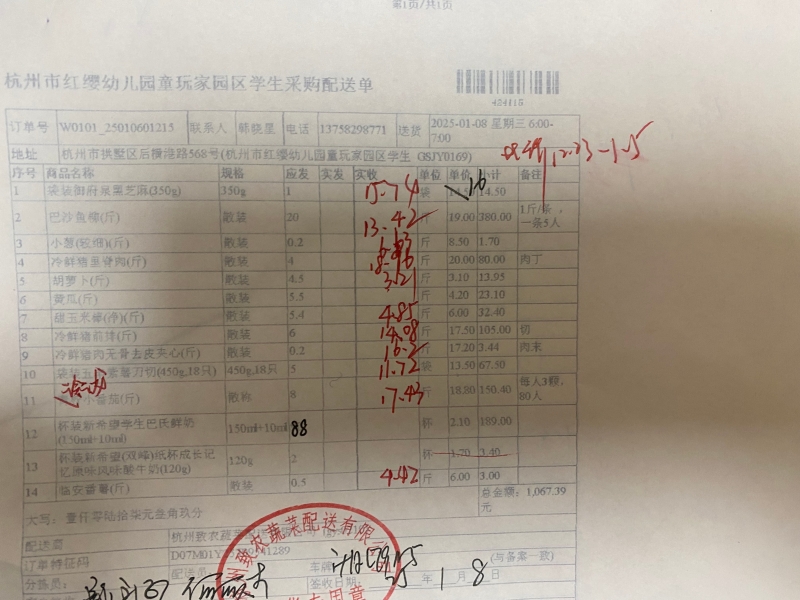 第1页/共1页
杭州市红缨幼儿园童玩家园区学生采购配送单
424115
订单号 W0101_25010601215 联系人 韩晓星 电话 13758298771 送货 2025-01-08 星期三 6:00-7:00
地址 杭州市拱墅区后横港路568号(杭州市红缨幼儿园童玩家园区学生 GSJY0169)
12.23-1.5
序号 商品名称 规格 应发 实发 实收 单位 单价 小计 备注
1 袋装御府泉黑芝麻(350g) 350g 1 15.74 袋 14.50 16
2 巴沙鱼柳(斤) 散装 20 13.42 斤 19.00 380.00 1斤/条，一条5人
3 小葱(较细)(斤) 散装 0.2 斤 8.50 1.70
4 冷鲜猪里脊肉(斤) 散装 4 斤 20.00 80.00 肉丁
5 胡萝卜(斤) 散装 4.5 3.21 斤 3.10 13.95
6 黄瓜(斤) 散装 5.5 斤 4.20 23.10
7 甜玉米棒(净)(斤) 散装 5.4 4.85 斤 6.00 32.40
8 冷鲜猪前排(斤) 散装 6 14.08 斤 17.50 105.00 切
9 冷鲜猪肉无骨去皮夹心(斤) 散装 0.2 16.2 斤 17.20 3.44 肉末
10 袋装玉 薯刀切(450g,18只) 450g,18只 5 11.72 袋 13.50 67.50
11 小番茄(斤) 散称 8 17.43 斤 18.80 150.40 每人3颗，80人
12 杯装新希望学生巴氏鲜奶(150ml+10ml) 150ml+10ml 88 杯 2.10 189.00
13 杯装新希望(双峰)纸杯成长记忆原味风味酸牛奶(120g) 120g 2 杯 1.70 3.40
14 临安番薯(斤) 散装 0.5 4.42 斤 6.00 3.00
总金额: 1,067.39元
大写: 壹仟零陆拾柒元叁角玖分
配送商 杭州致农蔬
订单特征码 D07M01Y 1289 (与备案一致)
配送员 车牌
分拣员: 签收日期: 25年1月8
州致农蔬菜配送有限公